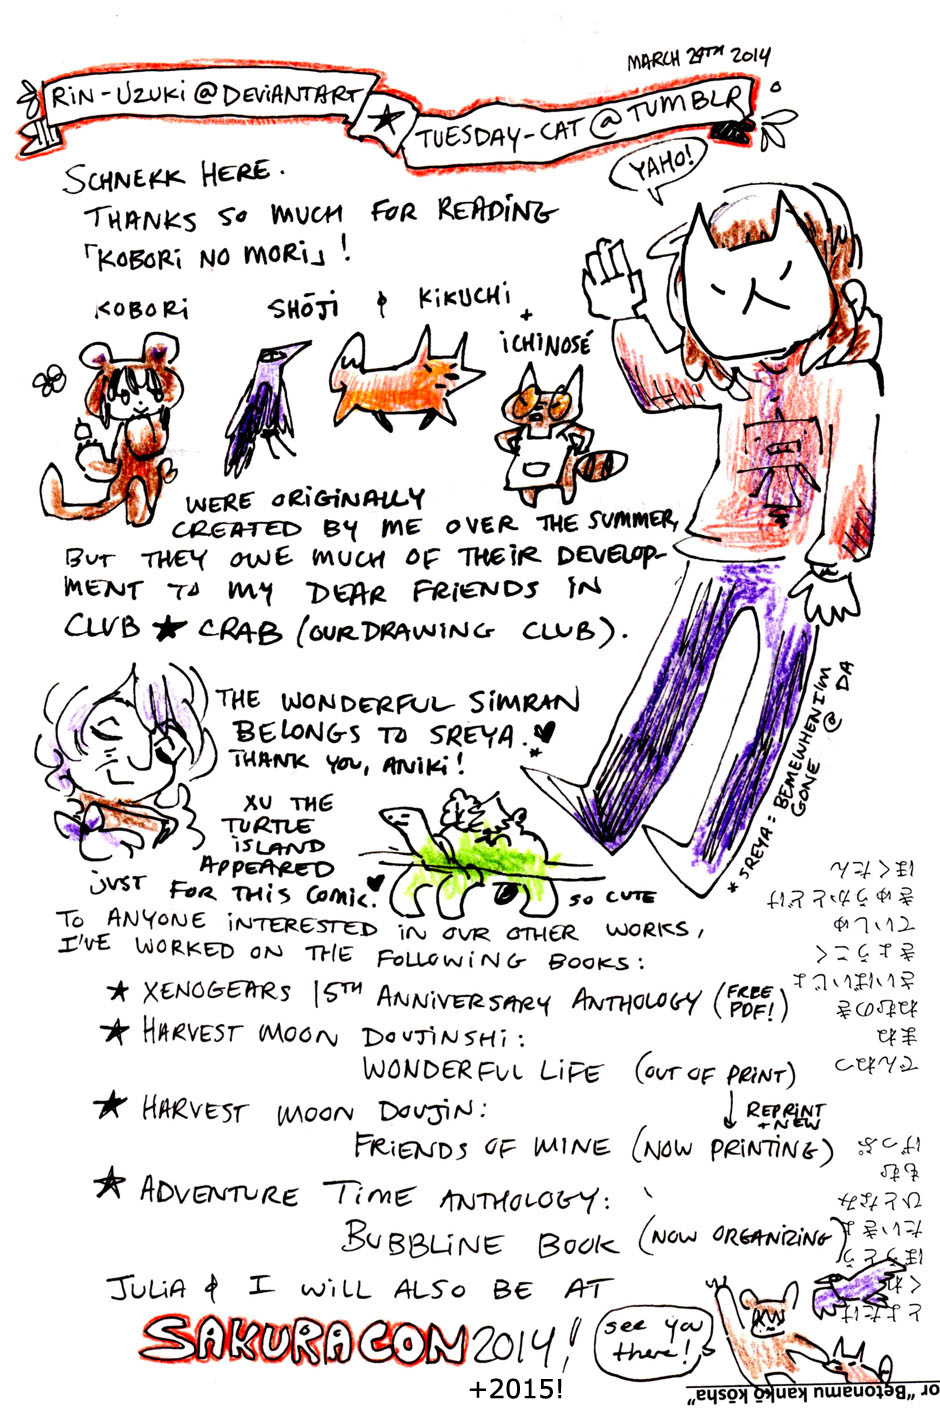 MARCH 29TH 2014
RIN-UZUKI@DEVIANTART
TUESDAY-CAT@TUMBLR
YAHO!
SCHNEKK HERE.
THANKS SO MUCH FOR READING
「KOBORI NO MORI」!
KOBORI
SHŌJI & KIKUCHI
+
ICHINOSÉ
WERE ORIGINALLY
CREATED BY ME OVER THE SUMMER,
BUT THEY OWE MUCH OF THEIR DEVELOP-
MENT TO MY DEAR FRIENDS IN
CLUB ★ CRAB (OUR DRAWING CLUB).
THE WONDERFUL SIMRAN
BELONGS TO SREYA.♥
*
THANK YOU, ANIKI!
*SREYA: BEMEWHENI'M
GONE @ DA
XU THE
TURTLE
ISLAND
APPEARED
JUST FOR THIS COMIC.♥
SO CUTE
TO ANYONE INTERESTED IN OUR OTHER WORKS,
I'VE WORKED ON THE FOLLOWING BOOKS:
★ XENOGEARS 15TH ANNIVERSARY ANTHOLOGY (FREE PDF!)
★ HARVEST MOON DOUJINSHI:
WONDERFUL LIFE (OUT OF PRINT)
↓ REPRINT
+ NEW
★ HARVEST MOON DOUJIN:
FRIENDS OF MINE (NOW PRINTING)
★ ADVENTURE TIME ANTHOLOGY:
BUBBLINE BOOK (NOW ORGANIZING)
JULIA & I WILL ALSO BE AT
SAKURACON 2014!
+2015!
see you
there!
or "Betonamu kankō kōsha"
とよたけ
くれ
ほうとう
たいきよ
ひとなみ
もむ
げっぷ
でんねつ
まね
ねむのき
さいばいじょ
きょうこく
ていしゅ
きゅうかとどけ
ほくたん